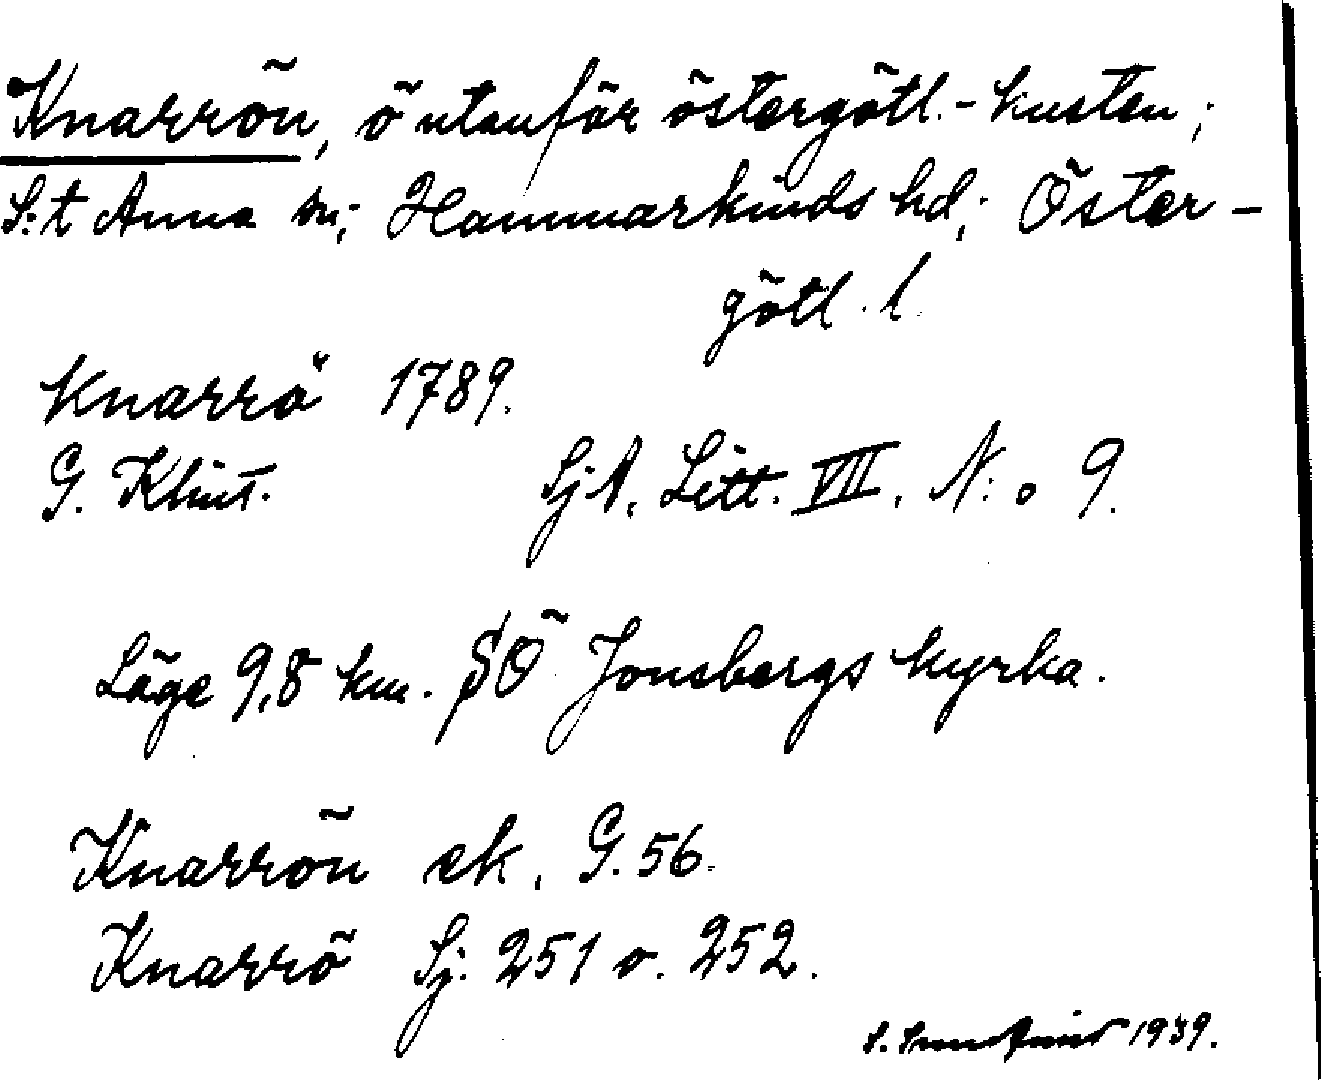 Knarrön, ö utanför östergötl.-kusten;
S:t Anna sn; Hammarkinds hd; Öster-
götl. l.
Knarrö 1789.
G. Klint. SjA. Litt. VII. N:o 9.
Läge 9,8 km. SÖ Jonsbergs kyrka.
Knarrön ek. G. 56.
Knarrö Sj. 251 o. 252.
S. 1939.